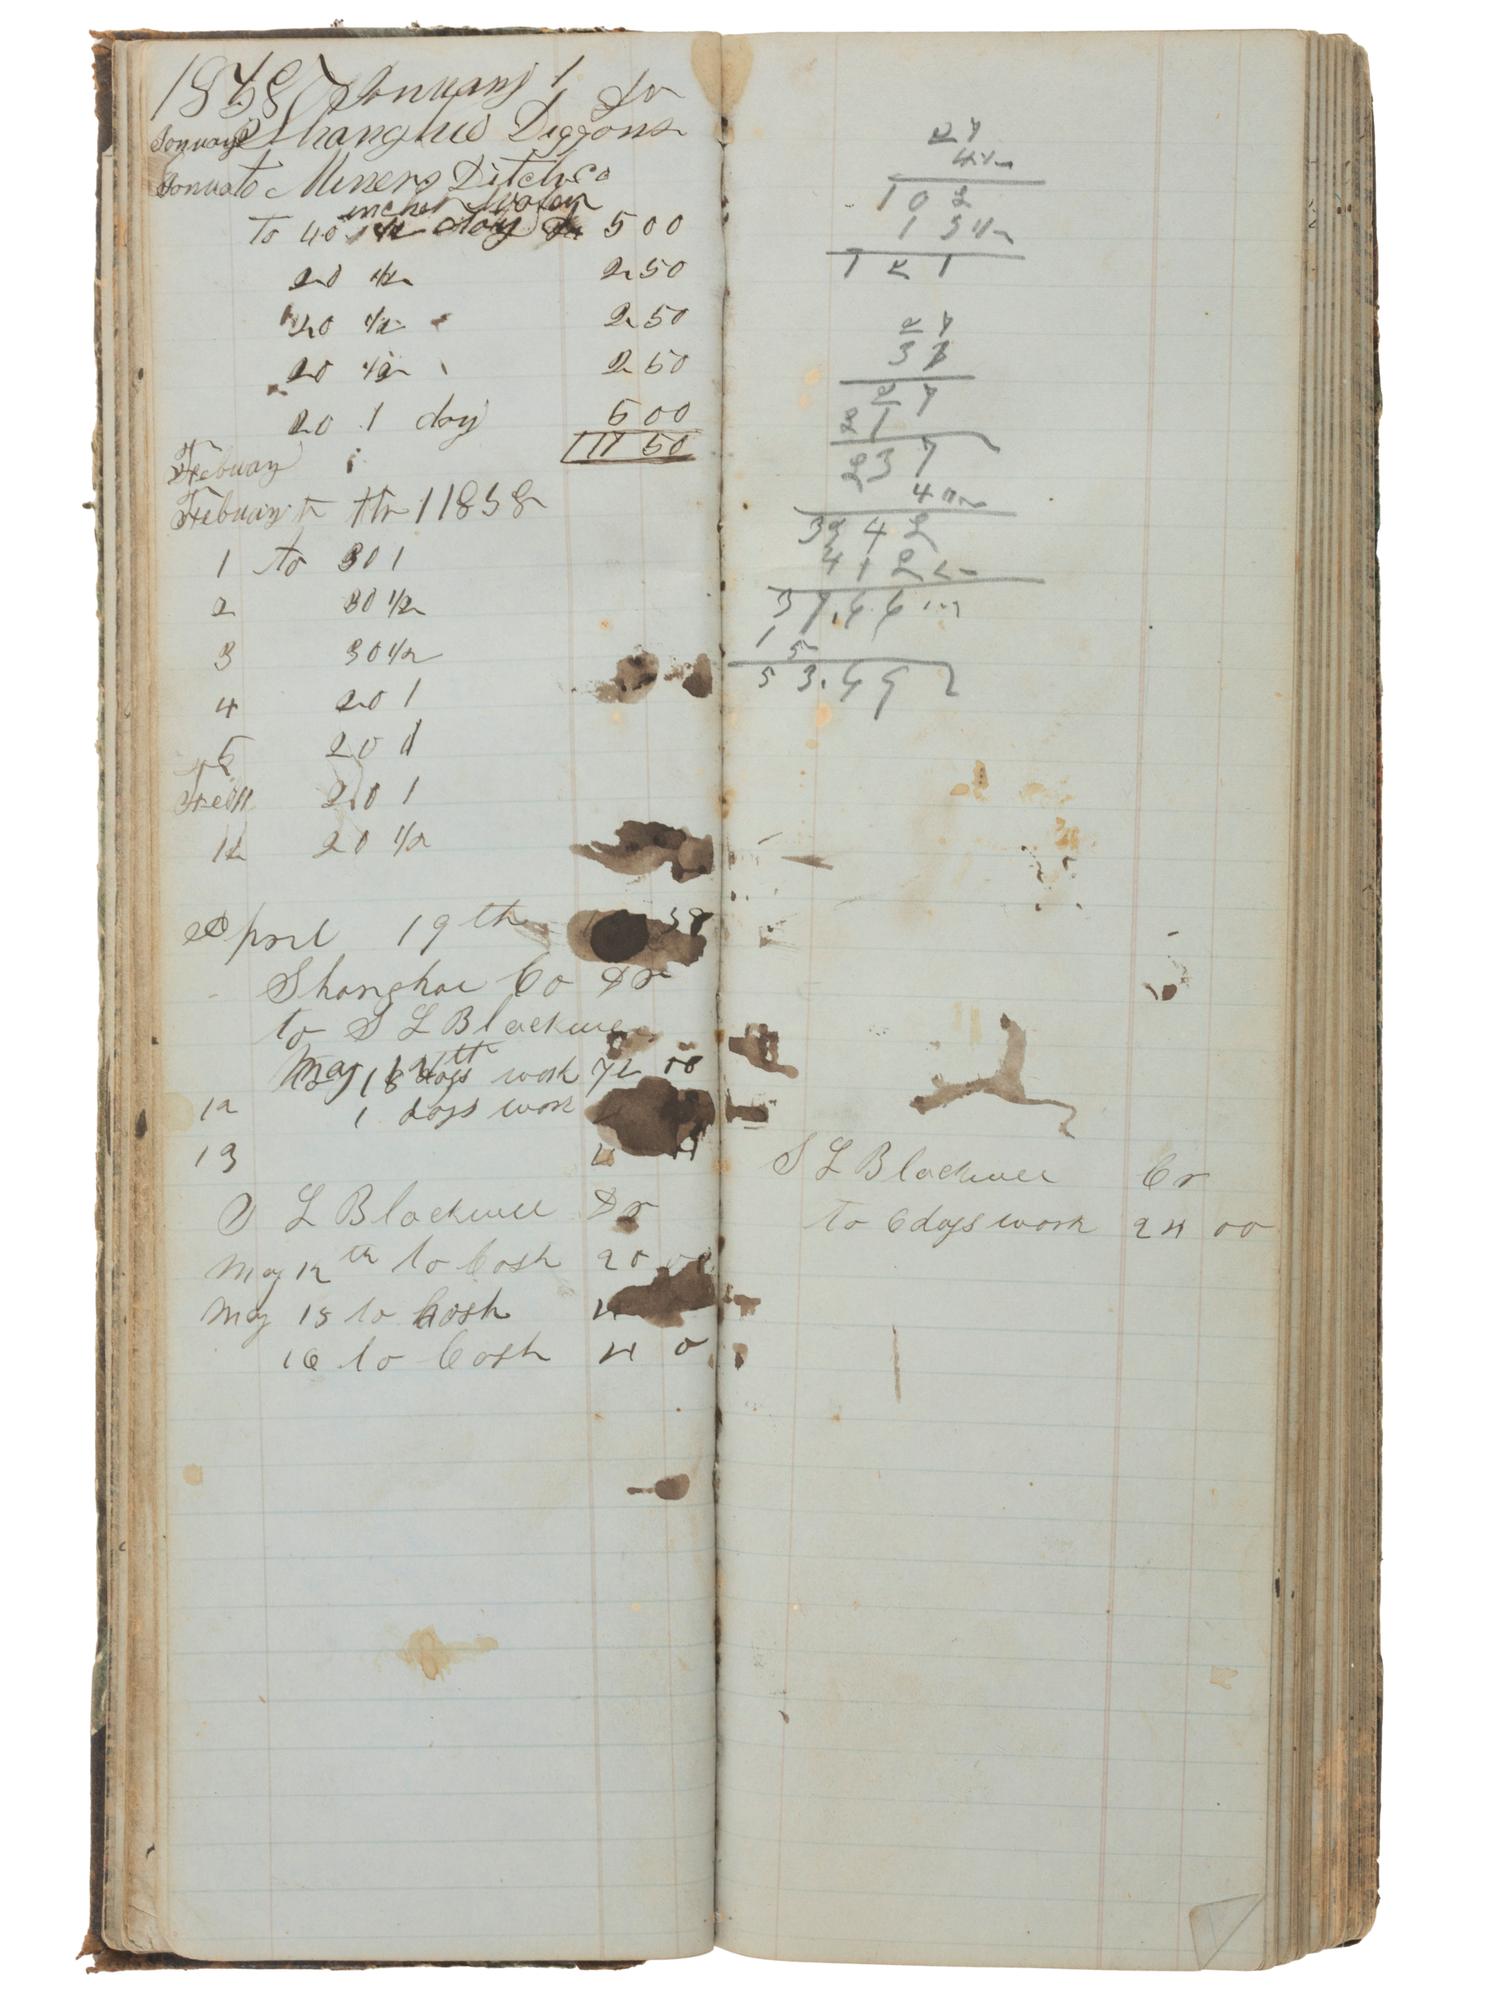 1858 January 1 Dr
January Shanghie Diggons
Janua to Miners Ditch Co
inches water
To 40 1/2 day 5 00
20 1/2 2 50
20 1/2 2 50
20 1/2 2 50
20 1 day 5 00
17 50
Febuay
Febuary th 1 1858
1 to 30 1
2 30 1/2
3 30 1/2
4 20 1
5 20 1
Feb 11 20 1
12 20 1/2
April 19th
Shanghae Co Dr
to S L Blackwell
May 18 days work 72 00
12 1 days work
13
S L Blackwell Dr
May 12th to Cash 20
May 15 to Cash
16 to Cash 4 0
27
102
121
27
27
21
237
3942
412
15
S L Blackwell Cr
To 6 days work 24 00